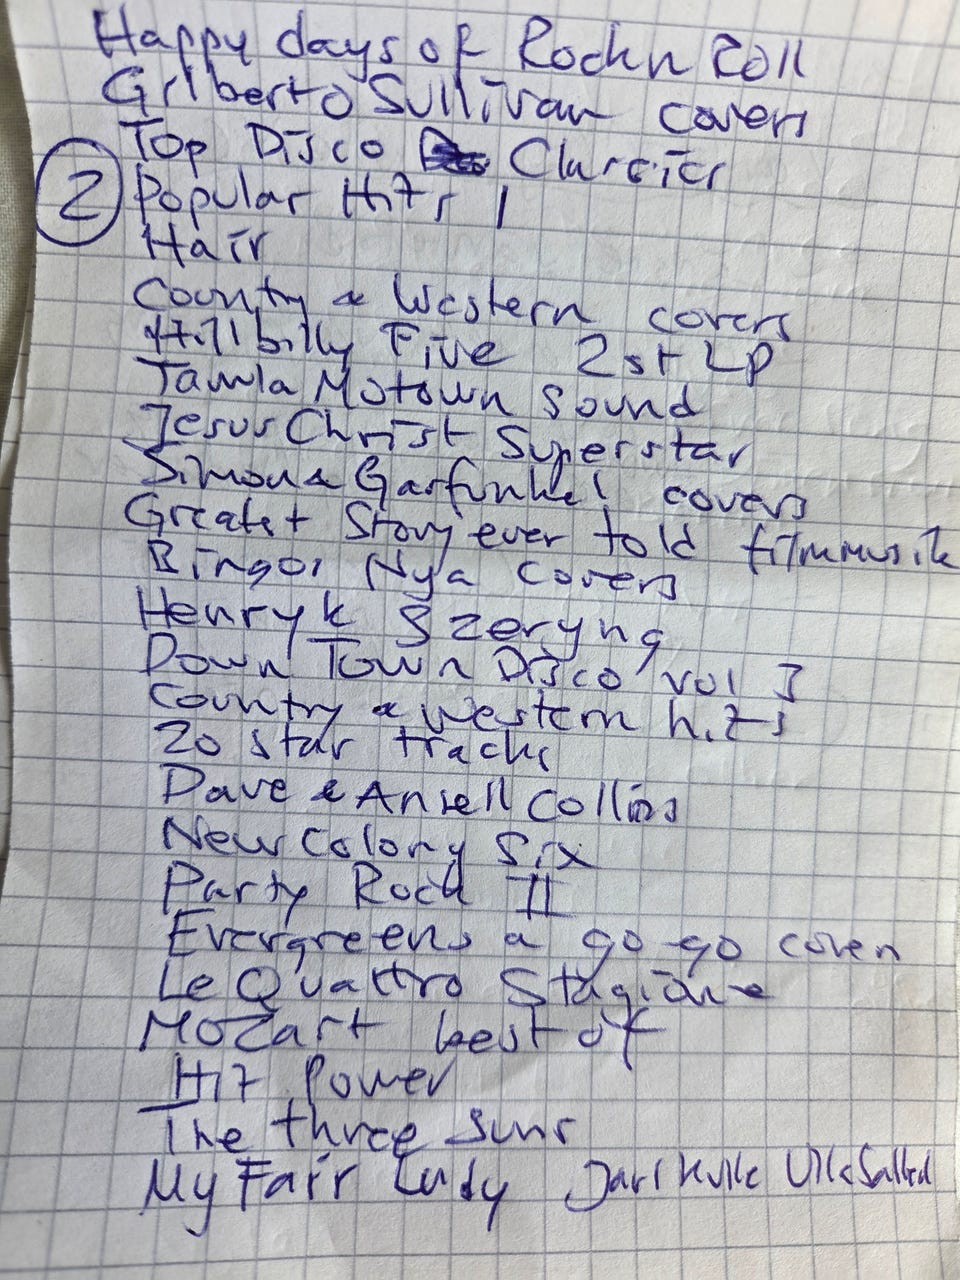 Happy days of Rockn Roll
Gilberto Sullivan covers
Top Disco Classics
2 Popular Hits 1
Hair
Country & Western covers
Hillbilly Five 2st LP
Tamla Motown Sound
Jesus Christ Superstar
Simon & Garfunkel covers
Greatest Story ever told filmmusik
Bingos Nya covers
Henryk Szeryng
Down Town Disco vol 3
Country & Western hits
20 star tracks
Dave & Ansell Collins
New Colony Six
Party Rock II
Evergreens a go go covers
Le Quattro Stagione
Mozart best of
Hit Power
The three suns
My Fair Lady Jarl Kulle Ulla Sallert